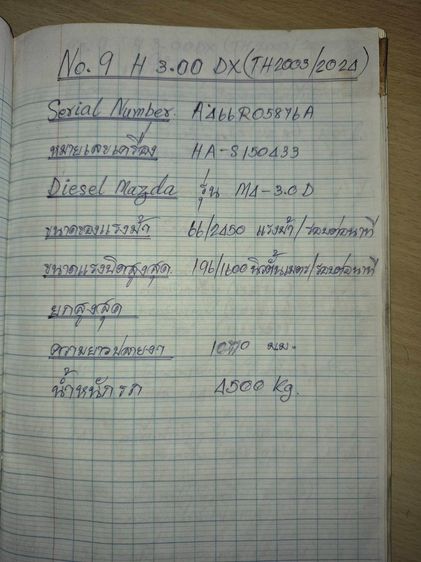 No. 9 H 3.00 DX (TH2003/2024)
Serial Number A466R05876A
หมายเลขเครื่อง HA-S150433
Diesel Mazda รุ่น M4-3.0D
ขนาดของแรงม้า 66/2450 แรงม้า/รอบต่อนาที
ขนาดแรงบิดสูงสุด 196/1600 นิวตั้นเมตร/รอบต่อนาที
ยกสูงสุด
ความยาวปลายงา 1070 มม.
น้ำหนักรถ 4500 Kg.